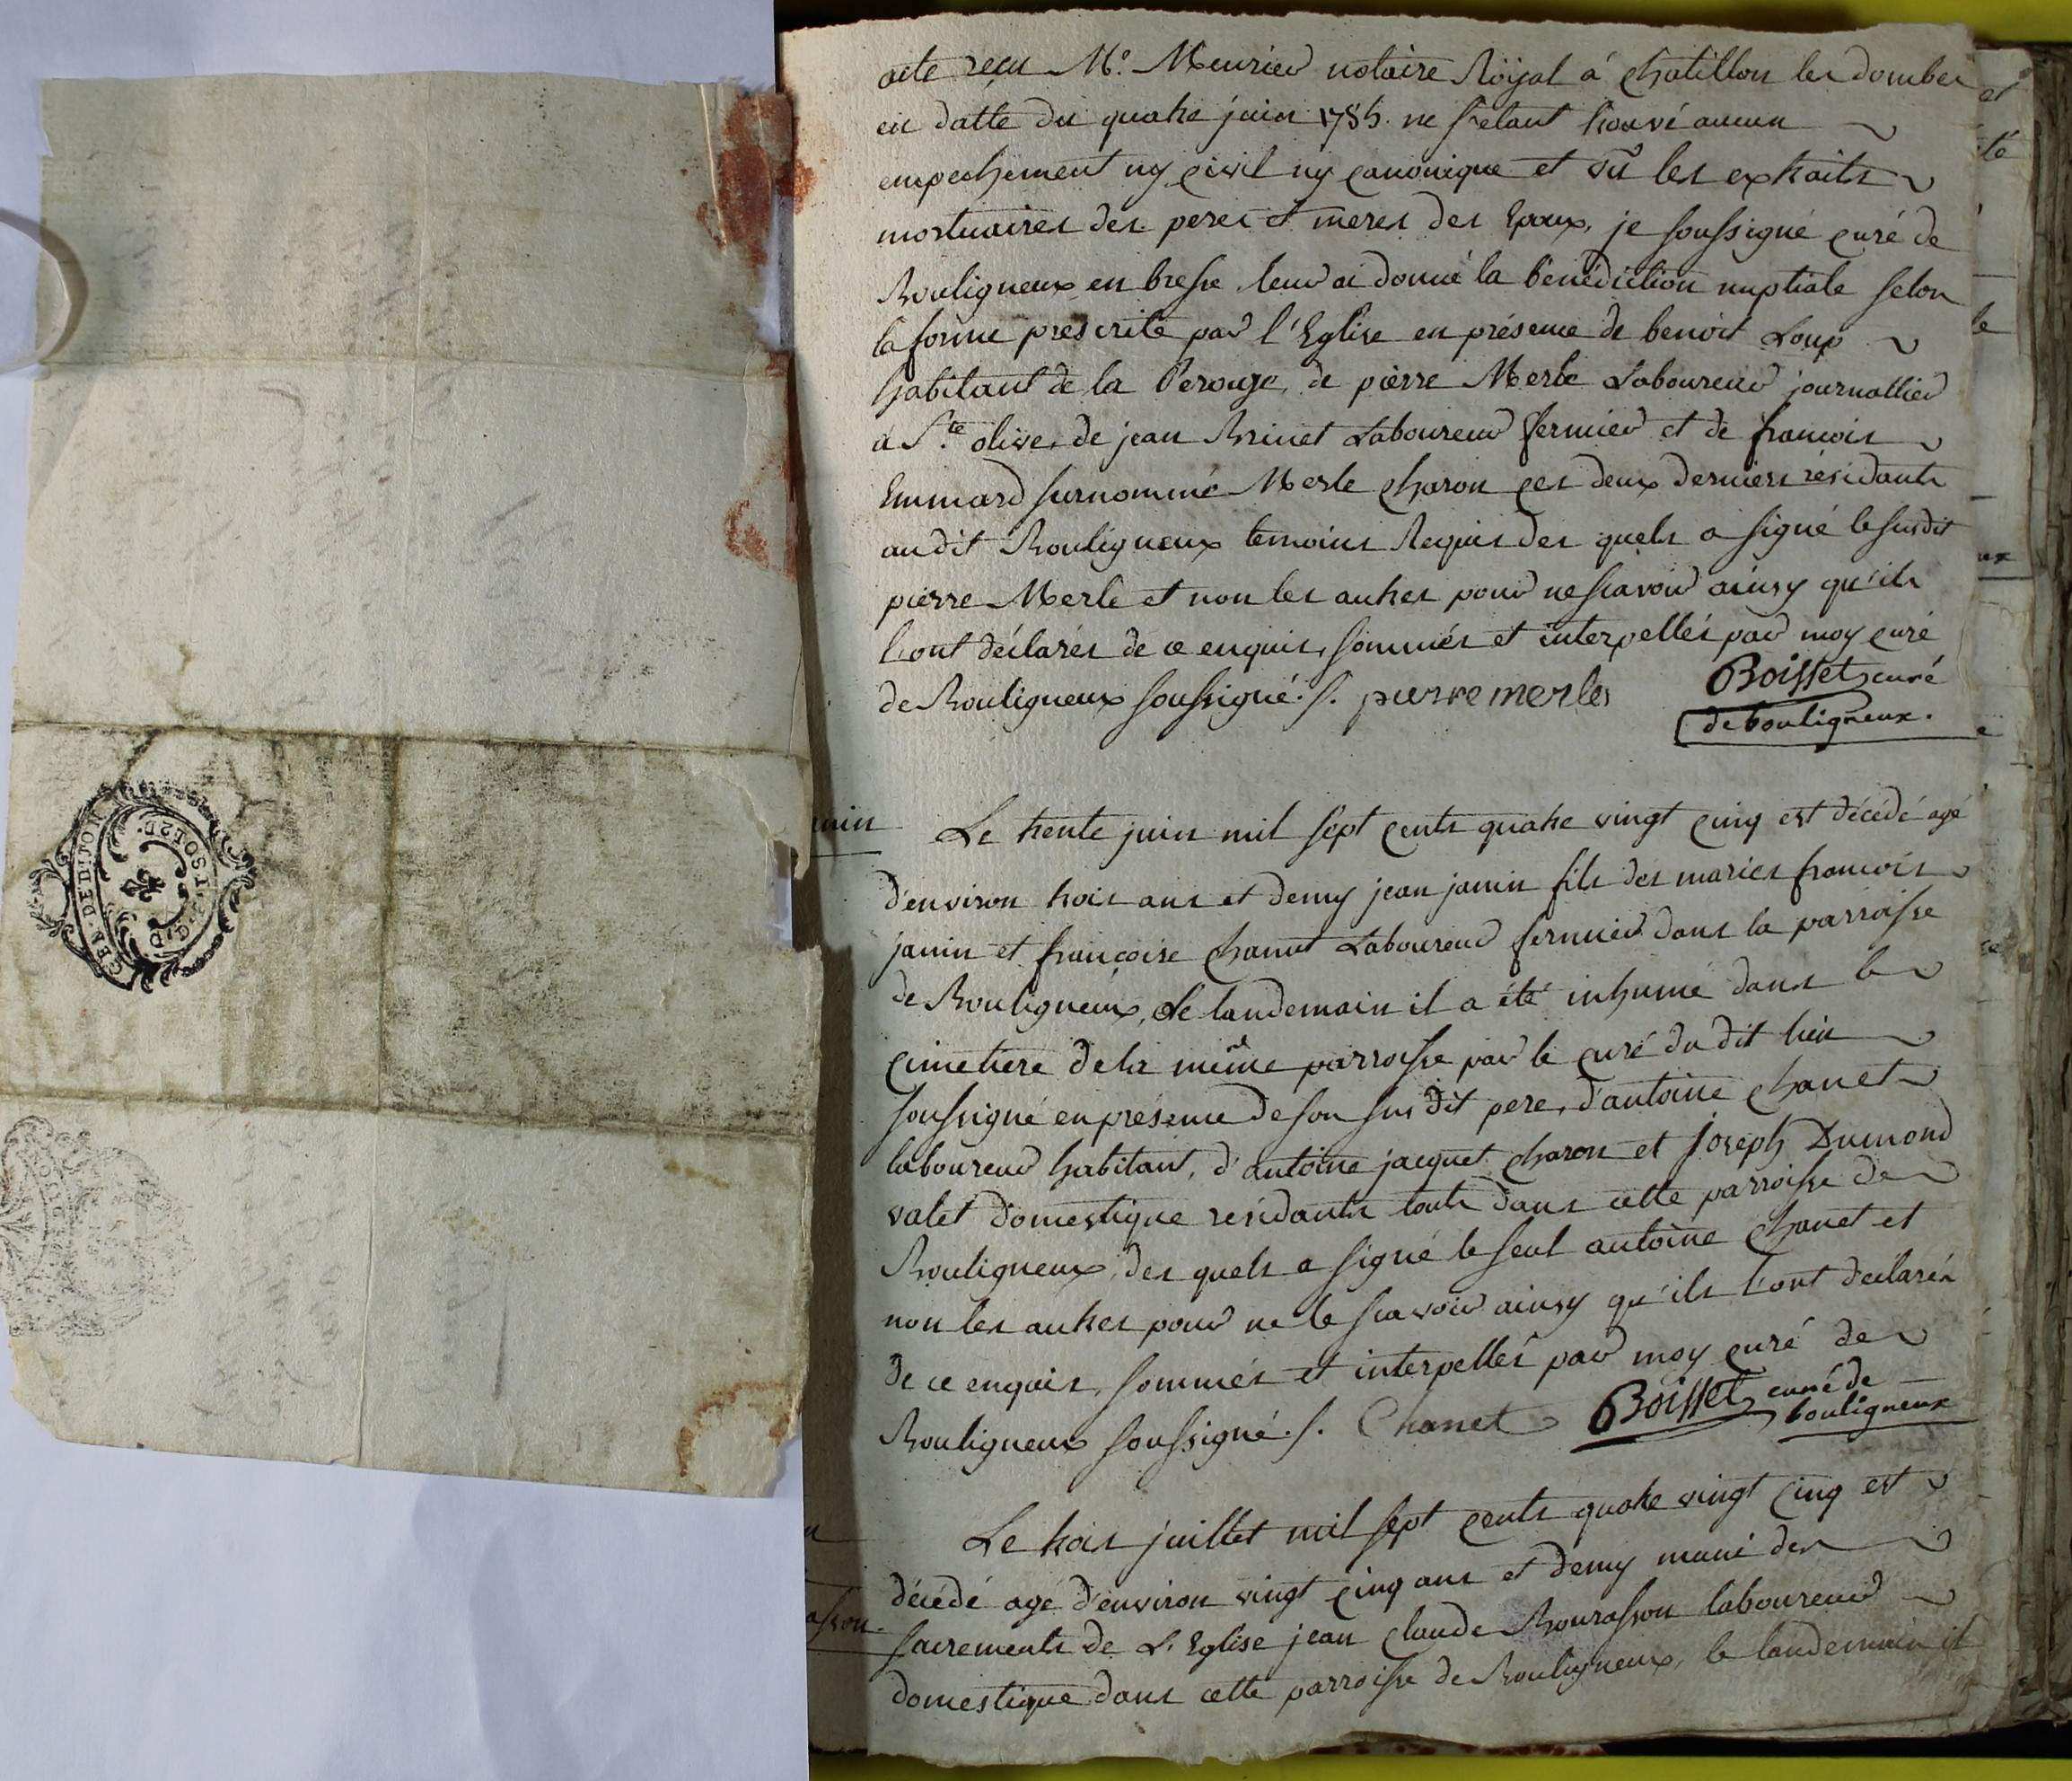 acte reçu Me. Meurier notaire Röyal a chatillon les dombes
en datte du quatre juin 1785. ne s'etant trouvé aucun
empechement ny civil ny canonique et vû les extraits
mortuaires des peres et meres des Epoux, je soussigné curé de
Bouligneux en bresse leur ai donné la bénédiction nuptiale selon
la forme prescrite par l'Eglise en présence de benoit Loup
habitant de la Perouge, de pierre Merle Laboureur journallier
a Ste. olive, de jean Brinet Laboureur fermier et de francois
Emmard surnommé Merle charon ces deux derniers résidants
au dit Bouligneux temoins Requis des quels a signé le susdit
pierre Merle et non les autres pour ne scavoir ainsy qu'ils
l'ont déclarés de ce enquis, sommés et interpellés par moy curé
de Bouligneux soussigné. /. pierre merle Boisset curé
de bouligneux.
Le trente juin mil sept cents quatre vingt cinq est décédé agé
d'environ trois ans et demy jean janin fils des maries francois
janin et françoise chanet Laboureur fermier dans la parroisse
de Bouligneux, Le landemain il a été inhumé dans le
cimetiere de la même parroisse par le curé du dit lieu
soussigné en présence de son sus dit pere, d'antoine chanet
laboureur habitant, d'antoine jacquet charon et joseph Dumond
valet domestique residants touts dans cette parroisse de
Bouligneux, des quels a signé le seul antoine chanet et
non les autres pour ne le scavoir ainsy qu'ils l'ont déclarés
de ce enquis, sommés et interpellés par moy curé de
Bouligneux soussigné. /. Chanet Boisset curé de
bouligneux
Le trois juillet mil sept cents quatre vingt cinq est
décédé agé d'environ vingt cinq ans et demy muni des
sacrements de L'Eglise jean claude Bourasson laboureur
domestique dans cette parroisse de Bouligneux, le landemain il
GEN. DE DIJON